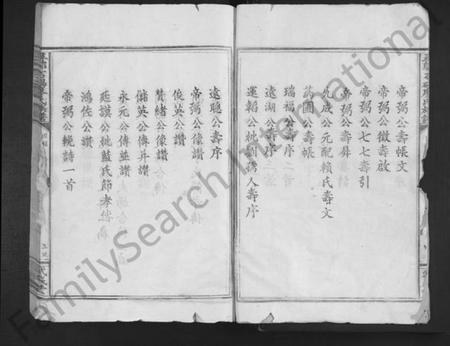 帝弼公壽帳文
帝弼公徵壽啟
帝弼公七七壽引
帝弼公壽屏
九成公元配賴氏壽文
壽帳
瑞福公壽序
遠湖公壽序
運韜公桃 人壽序
遠聰公壽序
帝弼公像讚
俟英公像讚
贊緒公像讚
儲英公傳并讚
永元公傳並讚
廷謨公桃藍氏節孝
鴻佐公讚
帝弼公輓詩一首
FamilySearch International